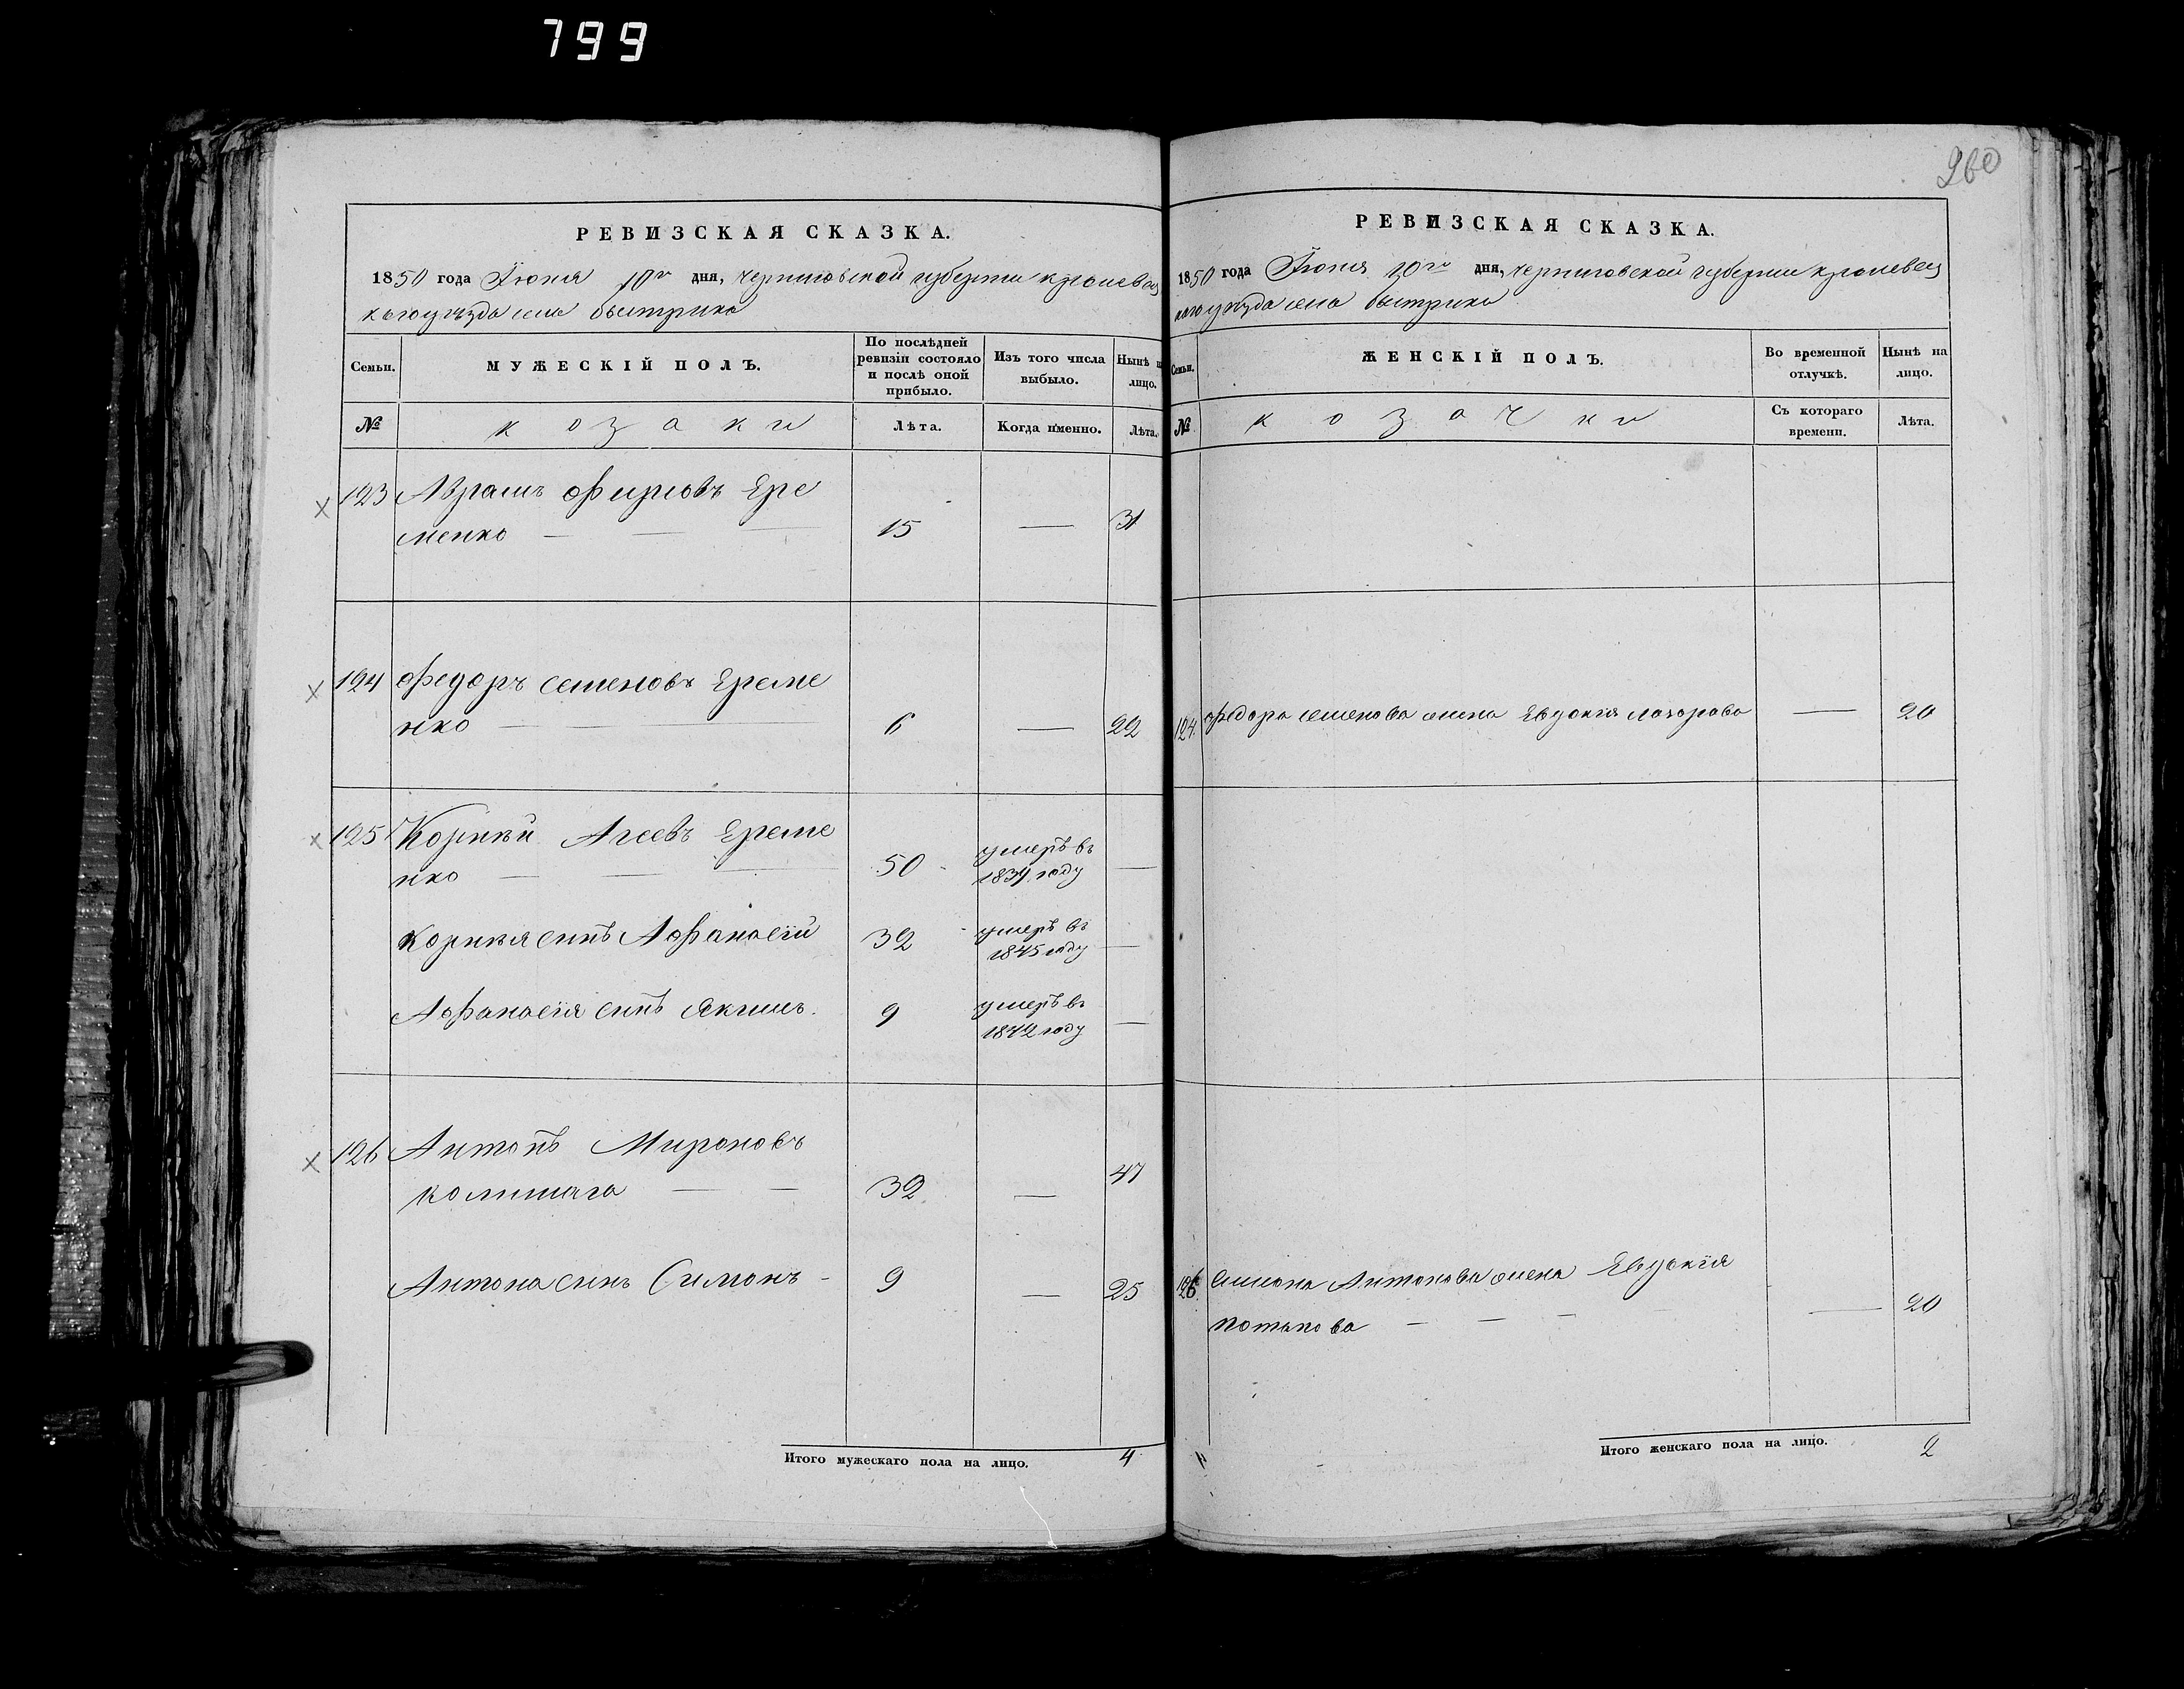 799
260
РЕВИЗСКАЯ СКАЗКА.
1850 года Іюня 10го дня, Черниговской губерніи кролевец
каго уѣзда села быстрика
Семьи. МУЖЕСКІЙ ПОЛЪ. По послѣдней ревизіи состояло и послѣ оной прибыло. Изъ того числа выбыло. Нынѣ на лицо.
№ козаки Лѣта. Когда именно. Лѣта.
123 Аврамъ Фирсовъ Ере
менко — — 15 — 31
124 Федоръ Семеновъ Ереме
нко — — 6 — 22
125 Корнѣй Агеевъ Ереме
нко — — — 50 умеръ въ 1839 году —
Корнѣя синъ Афанасій 32 умеръ въ 1845 году —
Афанасія синъ Якимъ. 9 умеръ въ 1842 году —
126 Антонъ Мироновъ
— — 32 — 47
Антона синъ Симонъ - 9 — 25
Итого мужескаго пола на лицо. 4
РЕВИЗСКАЯ СКАЗКА.
1850 года Іюня 10го дня, Черниговской губерніи кролевец
каго уѣзда села быстрика
Семьи. ЖЕНСКІЙ ПОЛЪ. Во временной отлучкѣ. Нынѣ на лицо.
№ козачки Съ котораго времени. Лѣта.
124. Федора Семенова жена Евдокія лазорова — 20
126. Симона Антонова жена Евдокія
потапова — — — — 20
Итого женскаго пола на лицо. 2